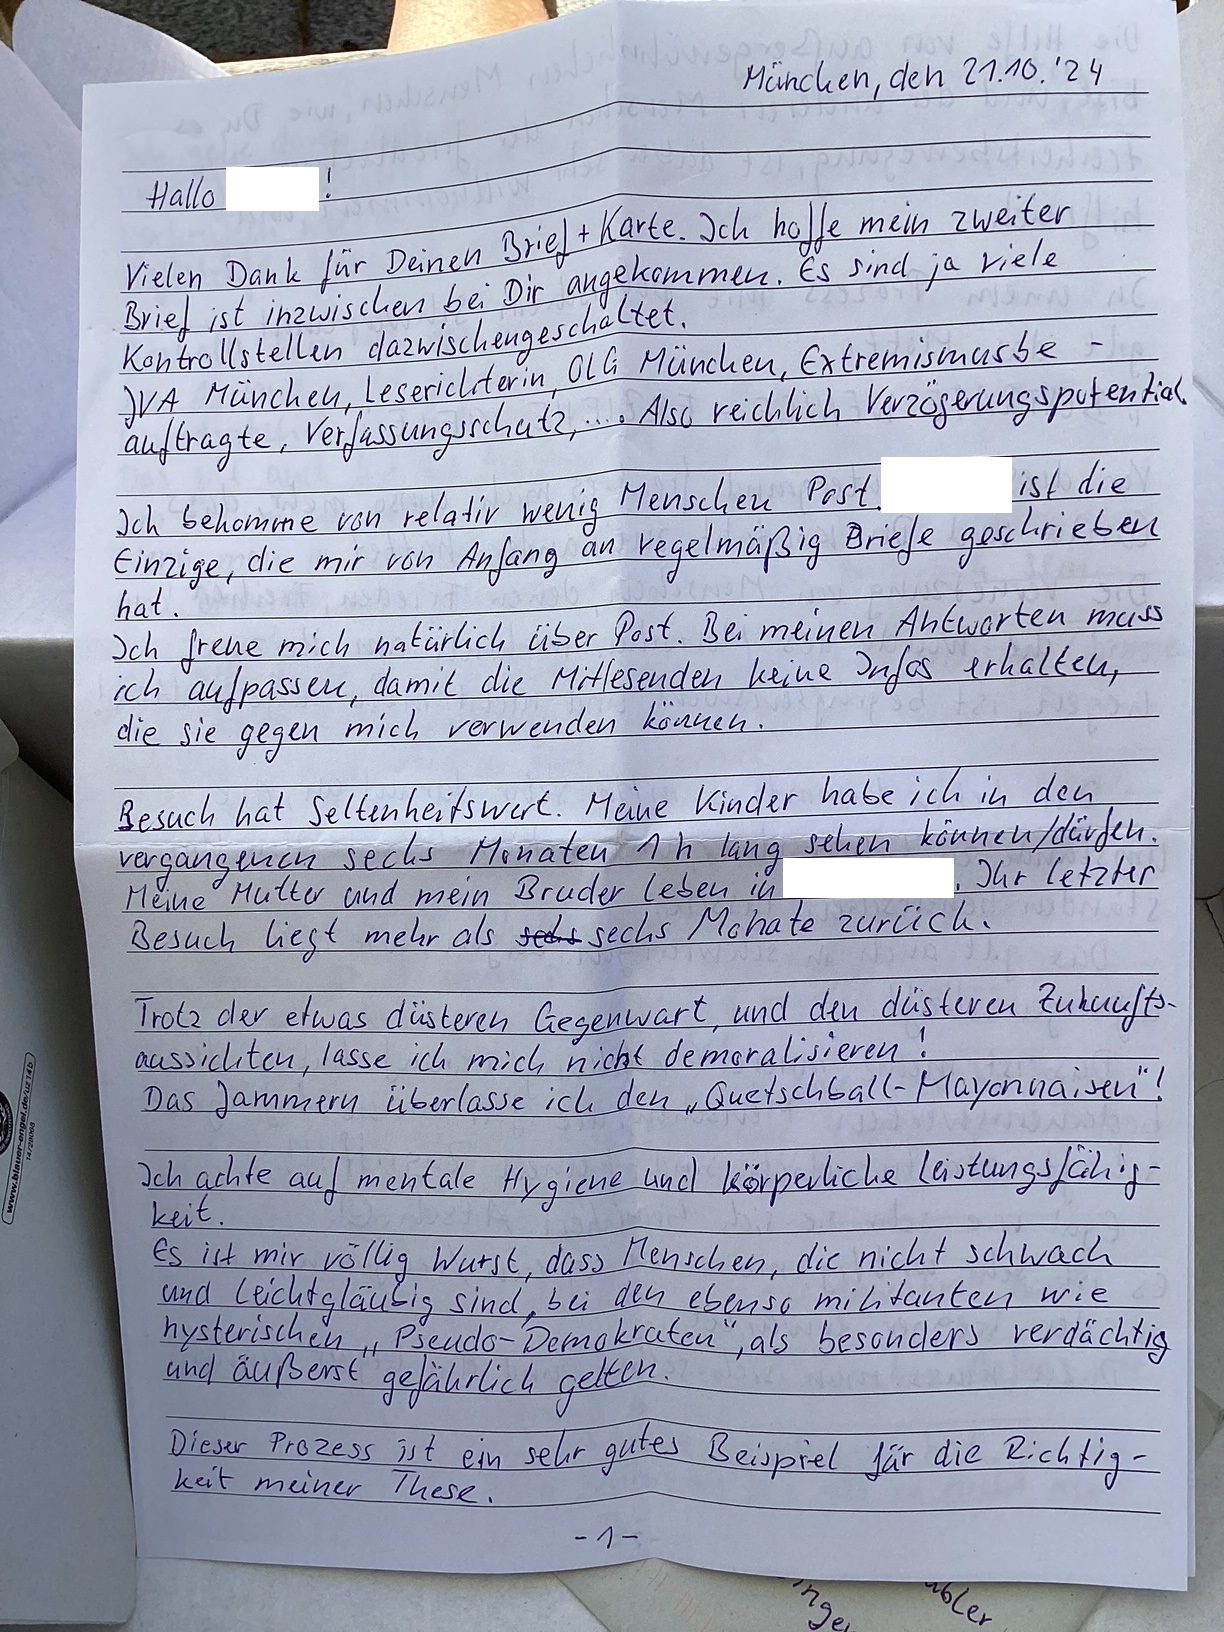 München, den 21.10.'24
Hallo !
Vielen Dank für Deinen Brief + Karte. Ich hoffe mein zweiter
Brief ist inzwischen bei Dir angekommen. Es sind ja viele
Kontrollstellen dazwischengeschaltet.
JVA München, Leserichterin, OLG München, Extremismusbe-
auftragte, Verfassungsschutz,.... Also reichlich Verzögerungspotential
Ich bekomme von relativ wenig Menschen Post. ist die
Einzige, die mir von Anfang an regelmäßig Briefe geschrieben
hat.
Ich freue mich natürlich über Post. Bei meinen Antworten muss
ich aufpassen, damit die Mitlesenden keine Infos erhalten,
die sie gegen mich verwenden können.
Besuch hat Seltenheitswert. Meine Kinder habe ich in den
vergangenen sechs Monaten 1 h lang sehen können/dürfen.
Meine Mutter und mein Bruder leben in . Ihr letzter
Besuch liegt mehr als sechs sechs Monate zurück.
Trotz der etwas düsteren Gegenwart, und den düsteren Zukunfts-
aussichten, lasse ich mich nicht demoralisieren!
Das Jammern überlasse ich den „Quetschball-Mayonnaisen"!
Ich achte auf mentale Hygiene und körperliche Leistungsfähig-
keit.
Es ist mir völlig Wurst, dass Menschen, die nicht schwach
und leichtgläubig sind, bei den ebenso militanten wie
hysterischen „Pseudo-Demokraten", als besonders verdächtig
und äußerst gefährlich gelten.
Dieser Prozess ist ein sehr gutes Beispiel für die Richtig-
keit meiner These.
-1-
www.blauer-engel.de/uz14b